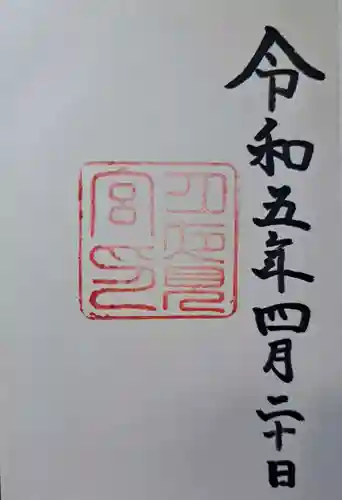 令和五年四月二十日
宮印